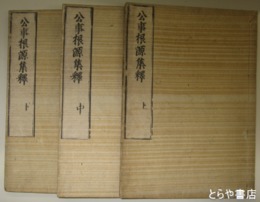 公事根源集釋
上
公事根源集釋
中
公事根源集釋
下
とらや書店